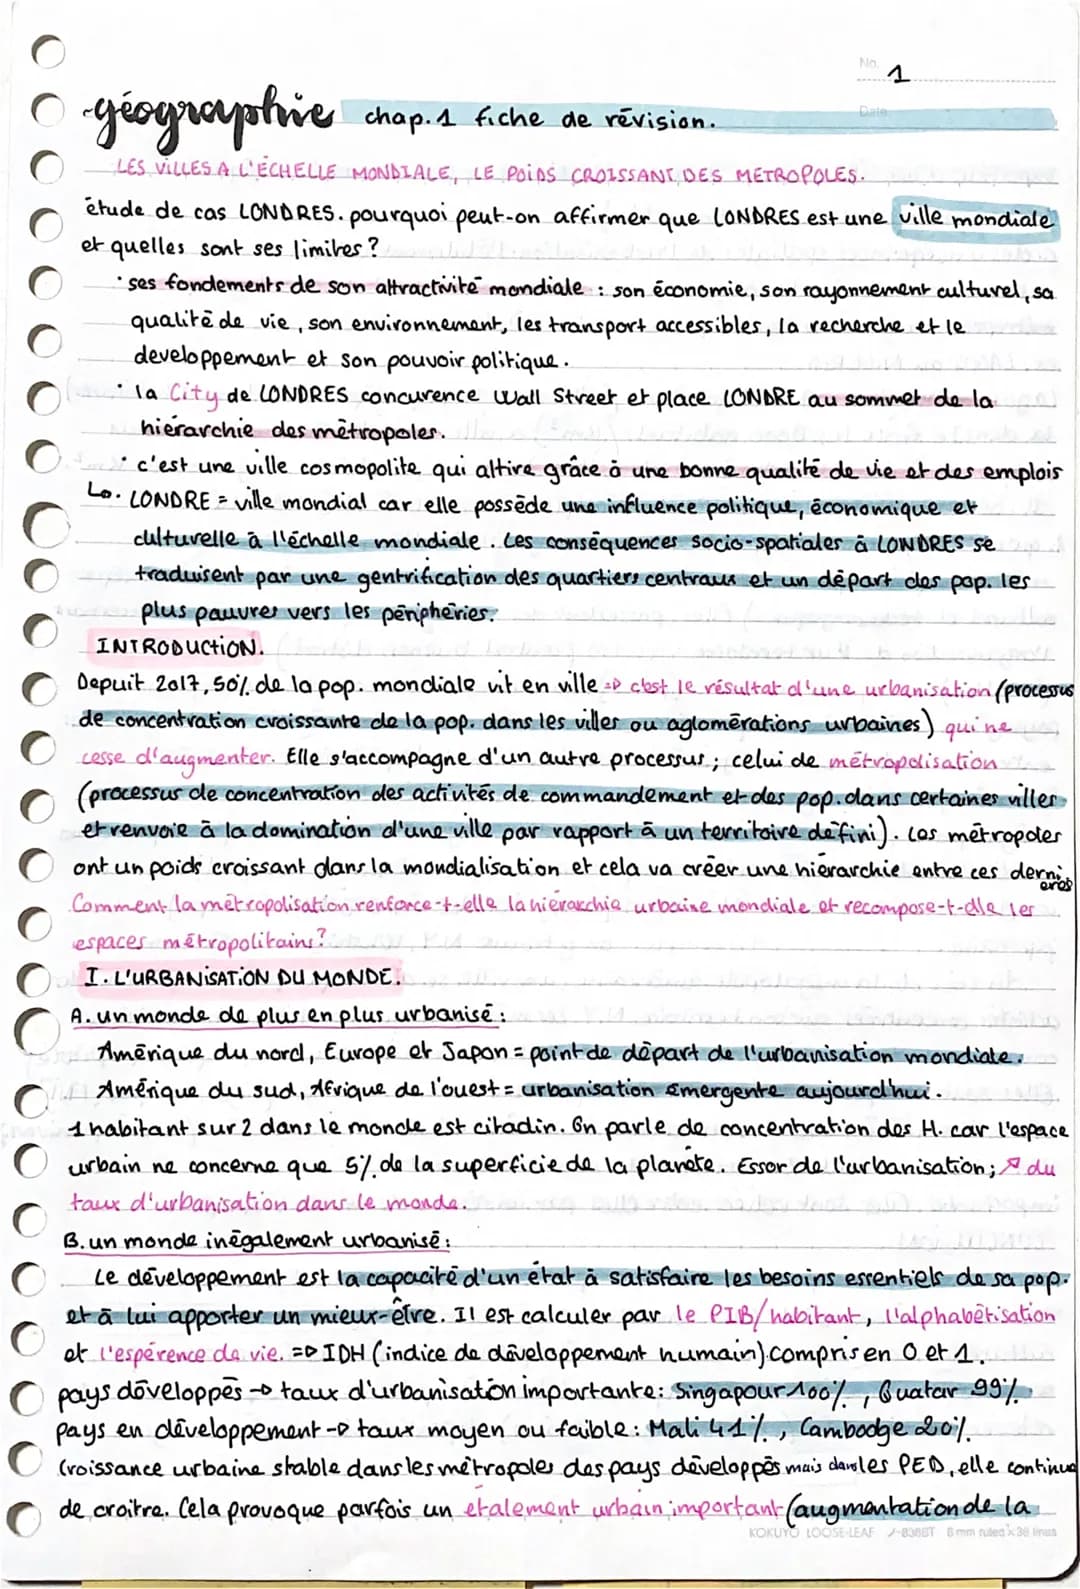 No. 1
géographie chap.1 fiche de révision.
Date
LES VILLES A L'ÉCHELLE MONDIALE, LE POIDS CROISSANT DES METROPOLES.
étude de cas LONDRES. pourquoi peut-on affirmer que LONDRES est une ville mondiale
et quelles sont ses limites ?
· ses fondements de son attractivité mondiale : son économie, son rayonnement culturel, sa
qualité de vie, son environnement, les transport accessibles, la recherche et le
developpement et son pouvoir politique.
· la City de LONDRES concurence Wall Street et place LONDRE au sommet de la
hiérarchie des métropoles.
· c'est une ville cosmopolite qui attire grâce à une bonne qualité de vie et des emplois
↳. LONDRE = ville mondial car elle possède une influence politique, économique et
culturelle à l'échelle mondiale. Les conséquences socio-spatiales à LONDRES se
traduisent par une gentrification des quartiers centraux et un départ des pop. les
plus pauvres vers les périphéries.
INTRODUCTION.
Depuit 2017, 50% de la pop. mondiale vit en ville => c'est le résultat d'une urbanisation (processus
de concentration croissante de la pop. dans les villes ou aglomérations urbaines) qui ne
cesse d'augmenter. Elle s'accompagne d'un autre processus ; celui de métropolisation
(processus de concentration des activités de commandement et des pop. dans certaines villes
et renvoie à la domination d'une ville par rapport à un territoire défini). Les métropoles
ont un poids croissant dans la mondialisation et cela va créer une hiérarchie entre ces dernières
Comment la métropolisation renforce-t-elle la hiérarchie urbaine mondiale et recompose-t-elle les
espaces métropolitains ?
I. L'URBANISATION DU MONDE.
A. un monde de plus en plus urbanisé :
Amérique du nord, Europe et Japon = point de départ de l'urbanisation mondiale.
Amérique du sud, Afrique de l'ouest = urbanisation émergente aujourd'hui.
1 habitant sur 2 dans le monde est citadin. On parle de concentration des H. car l'espace
urbain ne concerne que 5% de la superficie de la planète. Essor de l'urbanisation; ↗ du
taux d'urbanisation dans le monde.
B. un monde inégalement urbanisé :
Le développement est la capacité d'un état à satisfaire les besoins essentiels de sa pop.
et à lui apporter un mieux-être. Il est calculer par le PIB/habitant, l'alphabétisation
et l'espérence de vie. => IDH (indice de développement humain) compris en 0 et 1.
pays développés → taux d'urbanisation importante : Singapour 100%, Quatar 99%.
pays en développement → taux moyen ou faible : Mali 41%, Cambodge 20%.
Croissance urbaine stable dans les métropoles des pays développés mais dans les PED, elle continue
de croitre. Cela provoque parfois un étalement urbain important (augmentation de la
KOKUYO LOOSE-LEAF ノ-836BT 6 mm ruled×36 lines